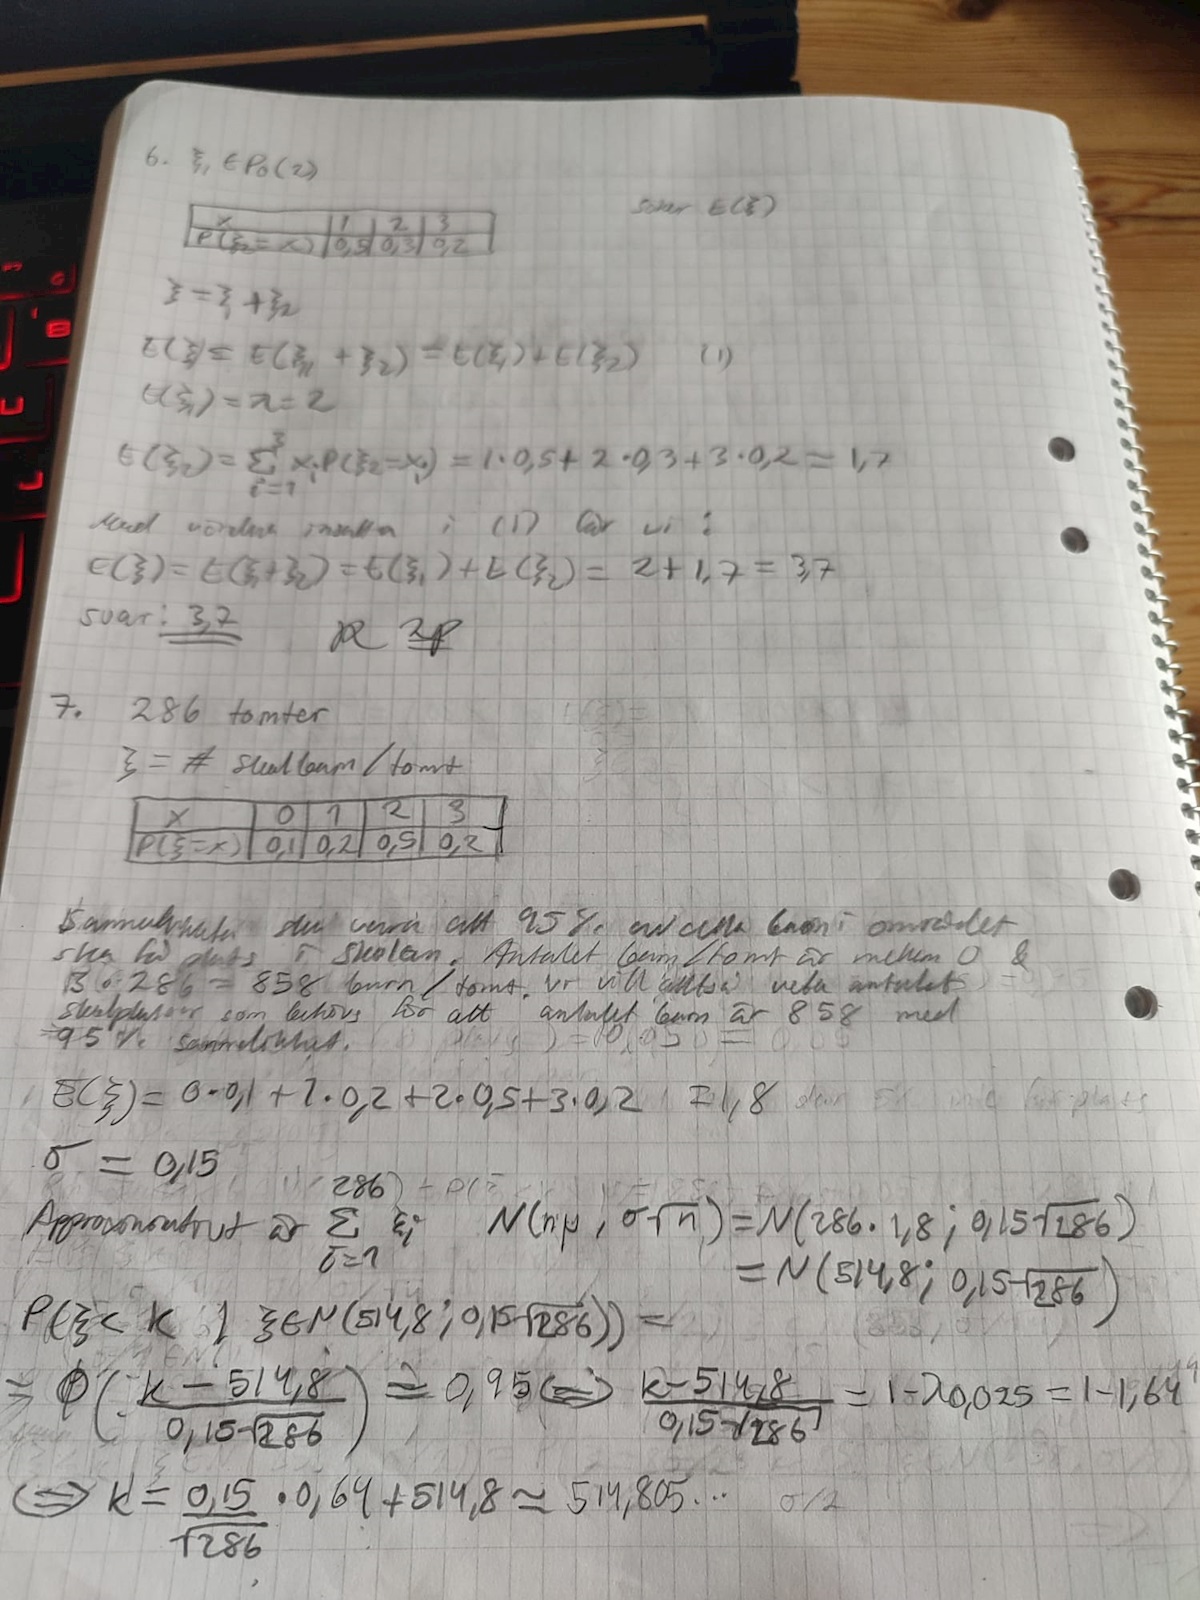 6. ξ₁ ∈ Po(2)
söker E(ξ)
x | 1 | 2 | 3
P(ξ₂=x) | 0,5 | 0,3 | 0,2
ξ = ξ₁ + ξ₂
E(ξ) = E(ξ₁ + ξ₂) = E(ξ₁) + E(ξ₂) (1)
E(ξ₁) = λ = 2
E(ξ₂) = Σ_{i=1}^{3} xᵢ P(ξ₂=xᵢ) = 1·0,5 + 2·0,3 + 3·0,2 = 1,7
Med värdena insatta i (1) får vi:
E(ξ) = E(ξ₁+ξ₂) = E(ξ₁) + E(ξ₂) = 2 + 1,7 = 3,7
svar: 3,7 R 2p
7. 286 tomter
ξ = # skolbarn/tomt
x | 0 | 1 | 2 | 3
P(ξ=x) | 0,1 | 0,2 | 0,5 | 0,2
Sannolikheten ska vara att 95% av alla barn i området
ska få plats i skolan. Antalet barn/tomt är mellan 0 &
3·286 = 858 barn/tomt. Vi vill alltså veta antalet
skolplatser som behövs för att antalet barn är 858 med
95% sannolikhet.
E(ξ) = 0·0,1 + 1·0,2 + 2·0,5 + 3·0,2 = 1,8
σ = 0,15
Approximativt är Σ_{i=1}^{286} ξᵢ N(nμ, σ√n) = N(286·1,8; 0,15√286)
= N(514,8; 0,15√286)
P(ξ < k | ξ∈N(514,8; 0,15√286)) =
= Φ((k - 514,8)/(0,15√286)) = 0,95 ⇔ (k-514,8)/(0,15√286) = 1-λ0,025 = 1-1,64
⇔ k = 0,15/√286 · 0,64 + 514,8 ≈ 514,805... 0/2